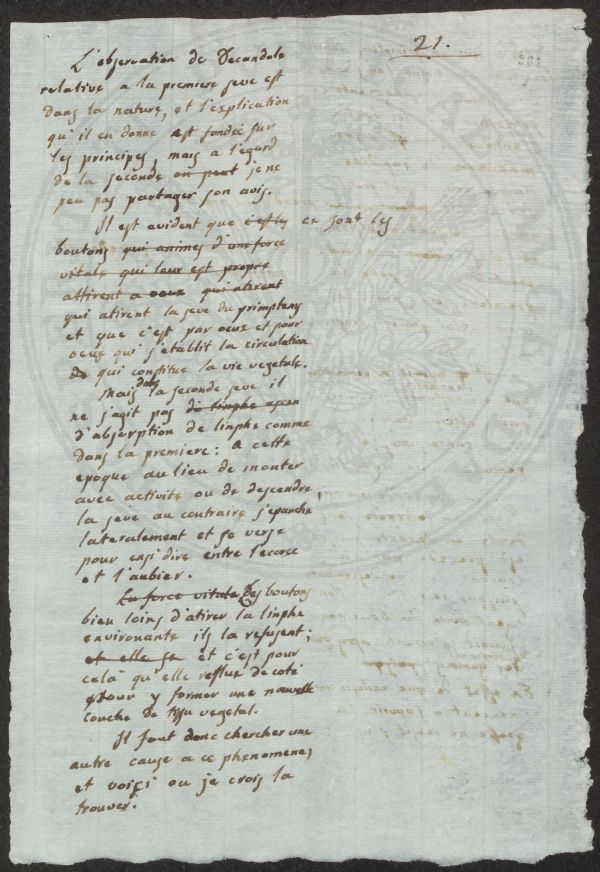 21.
L'observation de Decandole
relative a la premiere seve est
dans la nature, et l'explication
qu'il en donne est fondée sur
les principes, mais a l'egard
de la seconde on peut je ne
peu pas partager son avis.
Il est evident que c'est les ce sont les
boutons qui animés d'une force
vitale qui leur est propre
attirent a eeux qui atirent
qui atirent la seve du primptems
et que c'est par oeux et pour
oeux qui s'etablit la circulation
de qui constitue la vie vegetale.
Mais dans la seconde seve il
ne s'agit pas de linphe ascen
d'absorption de linphe comme
dans la premiere : a cette
epoque au lieu de monter
avec activité ou de descendre,
la seve au contraire s'epanche
lateralement et se verse
pour ensi dire entre l'ecorce
et l'aubier.
La force vitale Des boutons
bien loins d'atirer la linphe
environante ils la refusent ;
et elle se et c'est pour
celà qu'elle reflue de coté
pour y former une nouvelle
couche de tissu vegetal.
Il faut donc chercher une
autre cause a ce phenomene,
et voisi ou je crois la
trouver.